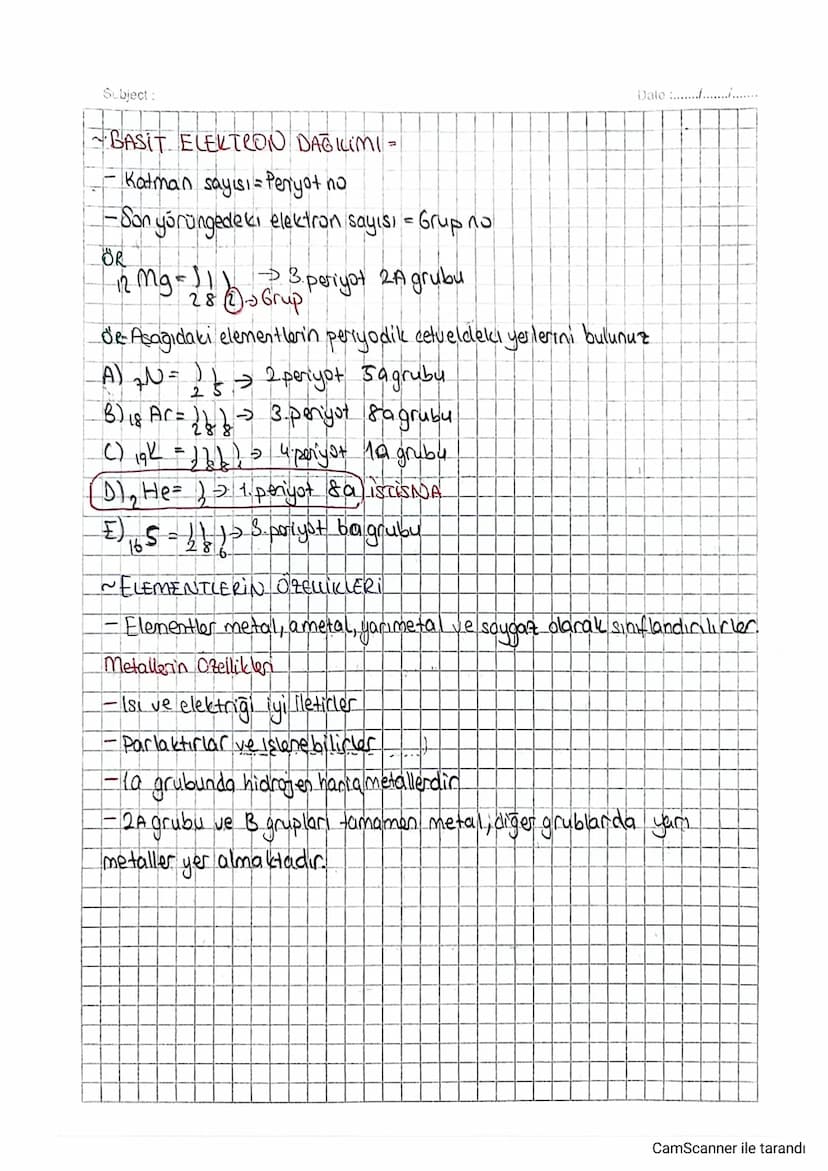 Subject :
Date :......./......./.......
~BASİT ELEKTRON DAĞILIMI =
- Katman sayısı = Periyot no
- Son yörüngedeki elektron sayısı = Grup no
ÖR
12 Mg = ) ) ) → 3.periyot 2A grubu
2 8 2 → Grup
ör Aşağıdaki elementlerin periyodik cetveldeki yerlerini bulunuz
A) 7N = ) ) → 2 periyot 5a grubu
2 5
B) 18 Ar = ) ) ) → 3.periyot 8a grubu
2 8 8
C) 19K = ) ) ) ) → 4 periyot 1a grubu
2 8 8 1
D) 2 He = ) → 1. periyot 8a İSTİSNA
2
E) 16S = ) ) ) → 3.periyot 6a grubu
2 8 6
~ELEMENTLERİN ÖZELLİKLERİ
- Elementler metal, ametal, yarımetal ve soygaz olarak sınıflandırılırlar.
Metallerin Özellikleri
- Isı ve elektriği iyi iletirler
- Parlaktırlar ve işlenebilirler
- 1a grubunda hidrojen hariç metallerdir
- 2A grubu ve B grupları tamamen metal, diğer gruplarda yarı
metaller yer almaktadır.
CamScanner ile tarandı